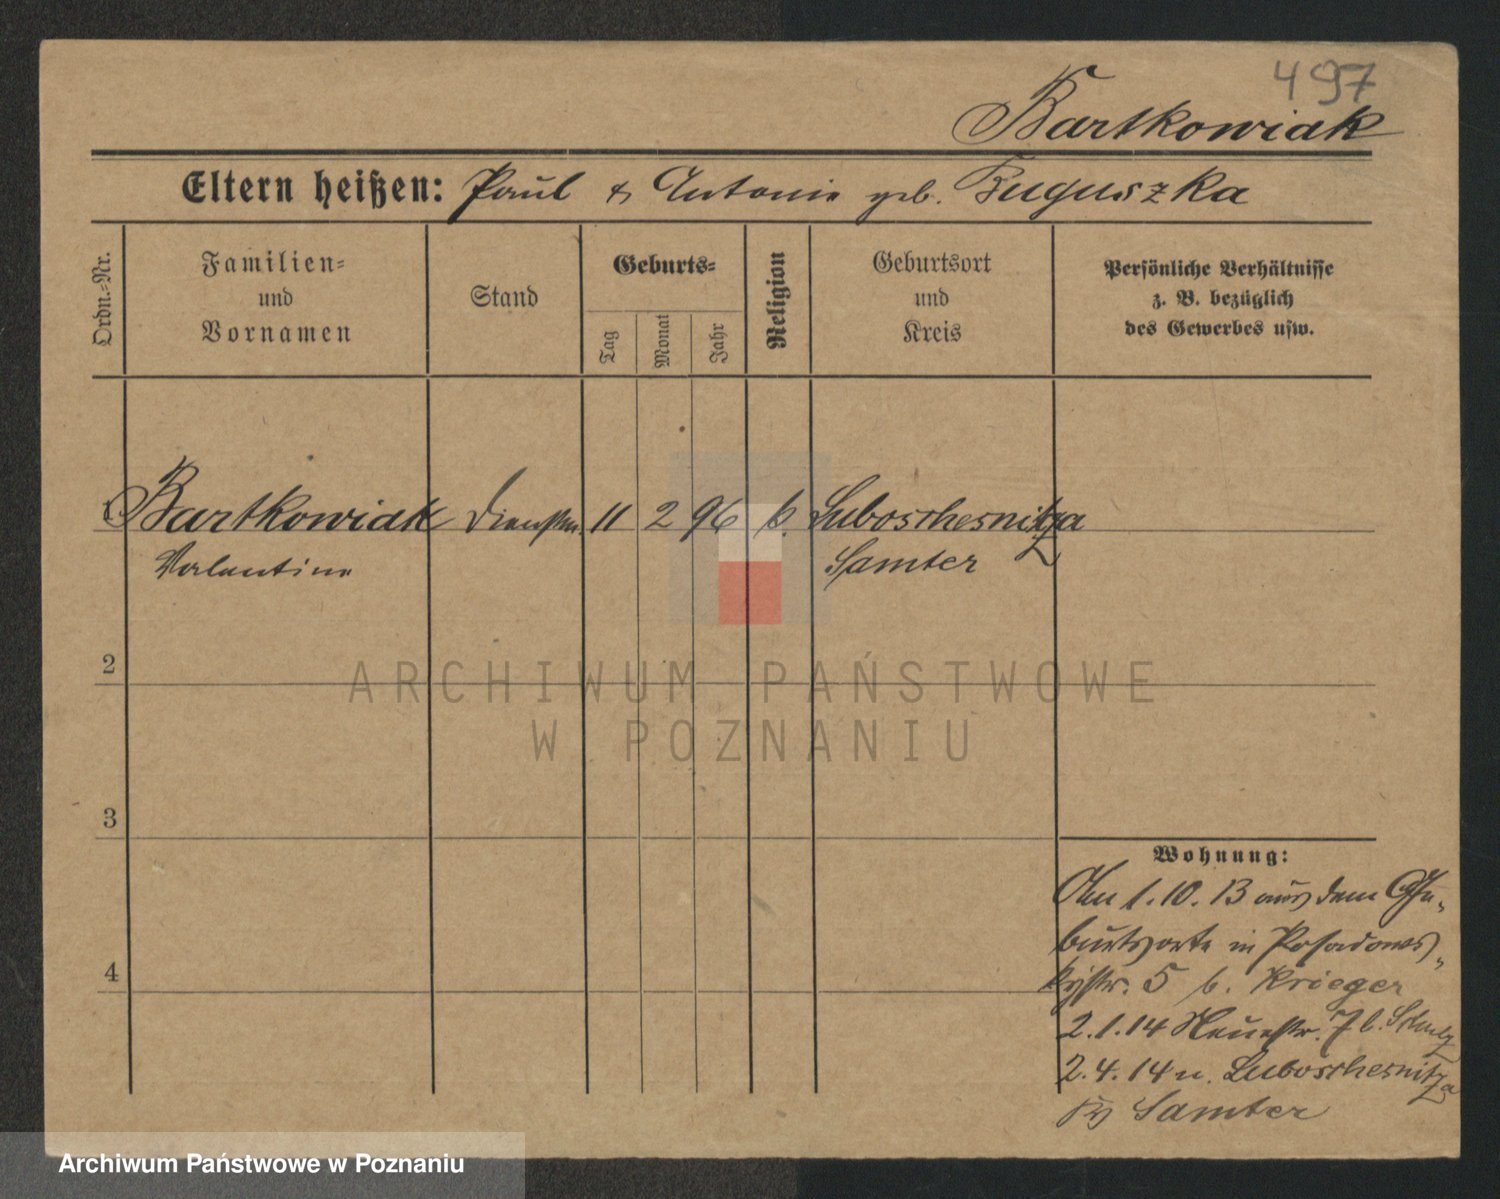 497
Bartkowiak
Eltern heißen: Paul & Antonie geb. Buguszka
Ordn.-Nr.
Familien-
und
Vornamen
Stand
Geburts-
Tag
Monat
Jahr
Religion
Geburtsort
und
Kreis
Persönliche Verhältnisse
z. B. bezüglich
des Gewerbes usw.
1 Bartkowiak Dienstm. 11 2 96 k. Luboschesnitza
Valentine Samter
2
3
4
Wohnung:
Am 1.10.13 aus dem Ge-
burtsorte in Posadows-
kystr. 5 b. Krieger
2.1.14 Neuestr. 7 b. Schulz
2.4.14 n. Luboschesnitza
Kr Samter
ARCHIWUM PAŃSTWOWE
W POZNANIU
Archiwum Państwowe w Poznaniu